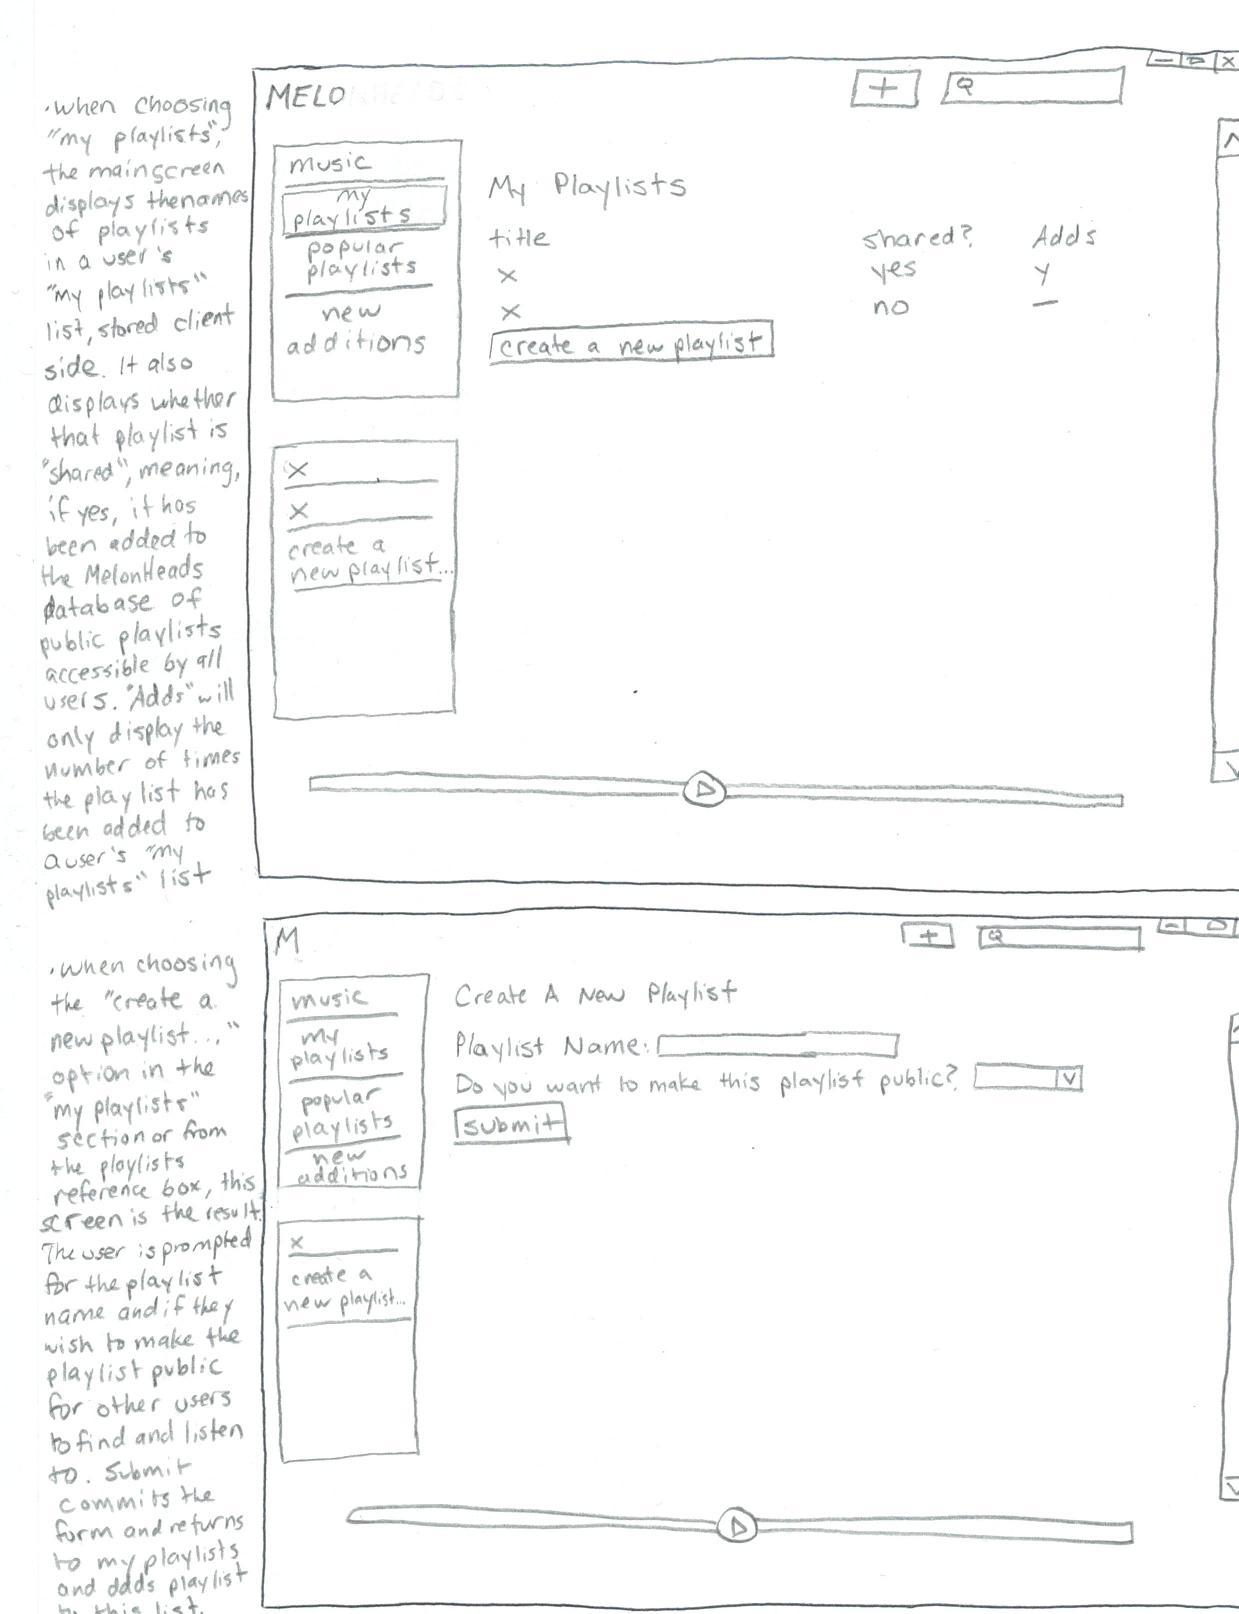 · when choosing
"my playlists",
the mainscreen
displays thenames
of playlists
in a user's
"my playlists"
list, stored client
side. It also
displays whether
that playlist is
"shared", meaning,
if yes, it has
been added to
the MelonHeads
database of
public playlists
accessible by all
users. "Adds" will
only display the
number of times
the playlist has
been added to
a user's "my
playlists" list
MELO
+
music
my
playlists
popular
playlists
new
additions
My Playlists
title shared? Adds
x yes y
x no —
create a new playlist
x
x
create a
new playlist...
· when choosing
the "create a
new playlist..."
option in the
"my playlists"
section or from
the playlists
reference box, this
screen is the result.
The user is prompted
for the playlist
name and if they
wish to make the
playlist public
for other users
to find and listen
to. Submit
commits the
form and returns
to my playlists
and adds playlist
to this list.
M
+
music
my
playlists
popular
playlists
new
additions
Create A New Playlist
Playlist Name:
Do you want to make this playlist public? V
submit
x
create a
new playlist...